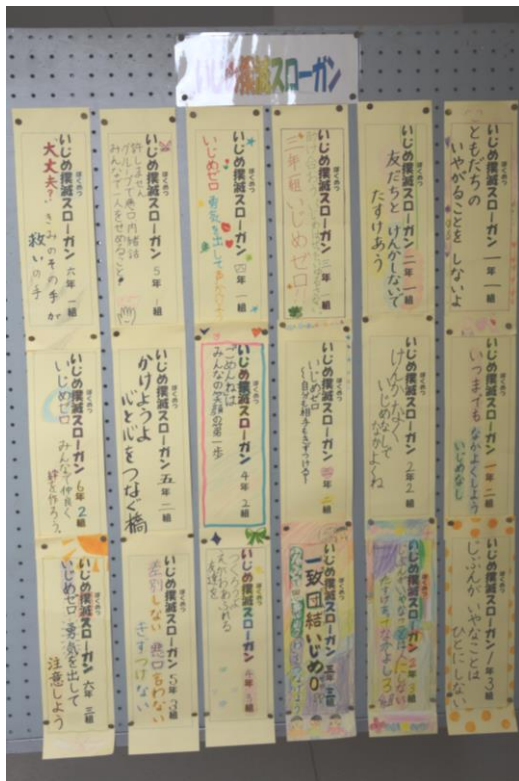 いじめ撲滅スローガン
いじめ撲滅スローガン 一年 一組
ともだちの
いやがることを しないよ
いじめ撲滅スローガン 二年 一組
友だちと けんかしないで
たすけあう
いじめ撲滅スローガン 三年 一組
三年一組 いじめゼロ!
いじめ撲滅スローガン 四年 一組
いじめゼロ 勇気を出して
いじめ撲滅スローガン 5年 1組
許しません
グループで悪口内緒話
みんなで一人をせめること!
いじめ撲滅スローガン 六年 一組
大丈夫? きみのその手が
救いの手
いじめ撲滅スローガン 一年 二組
いつまでも なかよくしよう
いじめなし
いじめ撲滅スローガン 2年2組
けんかしなく
いじめなくして
なかよくね
いじめ撲滅スローガン 二組
いじめゼロ
〜自分も相手もきずつける〜
いじめ撲滅スローガン 4年 2組
ごめんねは
みんなの笑顔の第一歩
いじめ撲滅スローガン 五年 二組
かけようよ
心と心をつなぐ橋
いじめ撲滅スローガン 6年 2組
いじめゼロ みんなで仲良く
絆を作ろう。
いじめ撲滅スローガン 1年 3組
じぶんが いやなことは
ひとにしない
いじめ撲滅スローガン 2年 3組
たすけあってなかよしろ組
いじめ撲滅スローガン 三年 三組
一致団結いじめ0
いじめ撲滅スローガン
つくろうよ
えがおあふれる
友達を
いじめ撲滅スローガン 5年3組
差別しない 悪口言わない
きずつけない
いじめ撲滅スローガン 六年 三組
いじめゼロ 勇気を出して
注意しよう